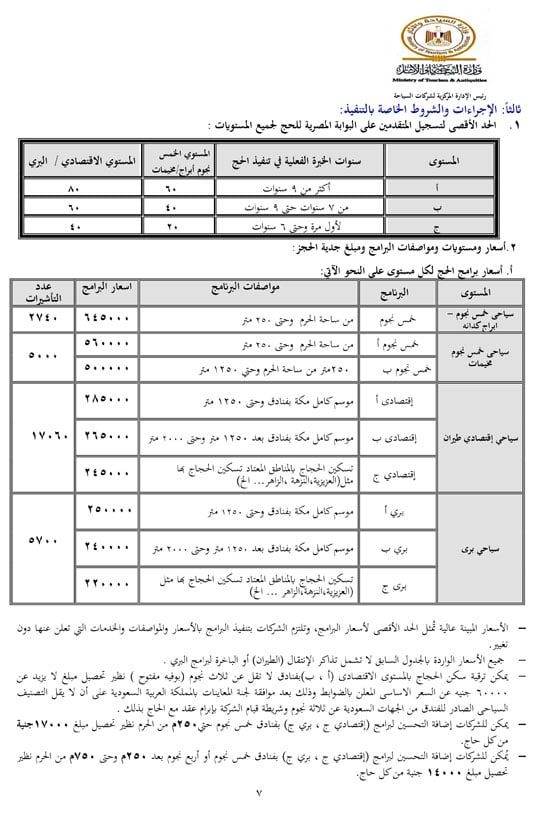 وزارة السياحة والآثار
Ministry of Tourism & Antiquities
رئيس الإدارة المركزية لشركات السياحة
ثالثاً: الإجراءات والشروط الخاصة بالتنفيذ:
١. الحد الأقصى لتسجيل المتقدمين على البوابة المصرية للحج لجميع المستويات :
المستوى سنوات الخبرة الفعلية في تنفيذ الحج المستوي الخمس نجوم أبراج/مخيمات المستوي الاقتصادي / البري
أ أكثر من ٩ سنوات ٦٠ ٨٠
ب من ٧ سنوات حتى ٩ سنوات ٤٠ ٦٠
ج لأول مرة وحتى ٦ سنوات ٢٠ ٤٠
٢. أسعار ومستويات ومواصفات البرامج ومبلغ جدية الحجز:
أ. أسعار برامج الحج لكل مستوى على النحو الآتي:
المستوى البرنامج مواصفات البرنامج اسعار البرامج عدد التأشيرات
سياحي خمس نجوم – ابراج كدانه خمس نجوم من ساحة الحرم وحتى ٢٥٠ متر ٦٤٥٠٠٠ ٢٧٤٠
سياحي خمس نجوم مخيمات خمس نجوم أ من ساحة الحرم وحتى ٢٥٠ متر ٥٦٠٠٠٠ ٥٠٠٠
خمس نجوم ب ٢٥٠متر من ساحة الحرم وحتي ١٢٥٠ متر ٥٠٠٠٠٠
سياحي إقتصادي طيران إقتصادى أ موسم كامل مكة بفنادق وحتى ١٢٥٠ متر ٢٨٥٠٠٠ ١٧٠٦٠
إقتصادى ب موسم كامل مكة بفنادق بعد ١٢٥٠ متر وحتى ٢٠٠٠ متر ٢٦٥٠٠٠
إقتصادي ج تسكين الحجاج بالمناطق المعتاد تسكين الحجاج بها مثل(العزيزية،النزهة ،الزاهر... الخ) ٢٤٥٠٠٠
سياحي برى بري أ موسم كامل مكة بفنادق وحتى ١٢٥٠ متر ٢٥٠٠٠٠ ٥٧٠٠
بري ب موسم كامل مكة بفنادق بعد ١٢٥٠ متر وحتى ٢٠٠٠ متر ٢٤٠٠٠٠
برى ج تسكين الحجاج بالمناطق المعتاد تسكين الحجاج بها مثل (العزيزية،النزهة،الزاهر ... الخ) ٢٢٠٠٠٠
– الأسعار المبينة عالية تُمثل الحد الأقصى لأسعار البرامج، وتلتزم الشركات بتنفيذ البرامج بالأسعار والمواصفات والخدمات التي تعلن عنها دون
تغيير.
– جميع الأسعار الواردة بالجدول السابق لا تشمل تذاكر الإنتقال (الطيران) أو الباخرة لبرامج البري .
– يمكن ترقية سكن الحجاج بالمستوى الاقتصادى (أ ، ب)بفنادق لا تقل عن ثلاث نجوم (بوفيه مفتوح ) نظير تحصيل مبلغ لا يزيد عن
٦٠٠٠٠ جنيه عن السعر الاساسى المعلن بالضوابط وذلك بعد موافقة لجنة المعاينات بالمملكة العربية السعودية على أن لا يقل التصنيف
السياحى الصادر للفندق من الجهات السعودية عن ثلاثة نجوم وشريطة قيام الشركة بإبرام عقد مع الحاج بذلك .
– يمكن للشركات إضافة التحسين لبرامج (إقتصادي ج ، بري ج) بفنادق خمس نجوم حتى٢٥٠م من الحرم نظير تحصيل مبلغ ١٧٠٠٠جنية
من كل حاج.
– يُمكن للشركات إضافة التحسين لبرامج (إقتصادي ج ، بري ج) بفنادق خمس نجوم أو أربع نجوم بعد ٢٥٠م وحتى ٧٥٠م من الحرم نظير
تحصيل مبلغ ١٤٠٠٠ جنية من كل حاج.
٧